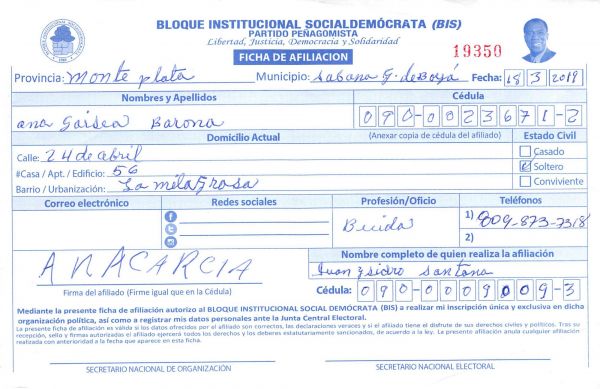 BLOQUE INSTITUCIONAL SOCIALDEMÓCRATA (BIS)
PARTIDO PEÑAGOMISTA
Libertad, Justicia, Democracia y Solidaridad
FICHA DE AFILIACION
19350
Provincia: Monte plata Municipio: Sabana G. de Boyá Fecha: 18 3 2019
Nombres y Apellidos Cédula
ana Garsea Barona 090-0023671-2
Domicilio Actual (Anexar copia de cédula del afiliado) Estado Civil
Calle: 24 de abril Casado
#Casa / Apt. / Edificio: 56 Soltero
Barrio / Urbanización: La milagrosa Conviviente
Correo electrónico Redes sociales Profesión/Oficio Teléfonos
1) 809-873-7318
2)
ANAGARCIA
Firma del afiliado (Firme igual que en la Cédula)
Nombre completo de quien realiza la afiliación
Juan Ysidro Santana
Cédula: 090-0009009-3
Mediante la presente ficha de afiliación autorizo al BLOQUE INSTITUCIONAL SOCIAL DEMÓCRATA (BIS) a realizar mi inscripción única y exclusiva en dicha
organización política, así como a registrar mis datos personales ante la Junta Central Electoral.
La presente ficha de afiliación es válida si los datos ofrecidos por el afiliado son correctos, las declaraciones veraces y si el afiliado tiene el disfrute de sus derechos civiles y políticos. Tras su
recepción, sello y firmas autorizadas el afiliado ejercerá todos los derechos y los deberes estatutariamente sancionados, de acuerdo a la ley. La presente afiliación anula cualquier afiliación
realizada con anterioridad a la fecha que aparece en esta ficha.
SECRETARIO NACIONAL DE ORGANIZACIÓN SECRETARIO NACIONAL ELECTORAL